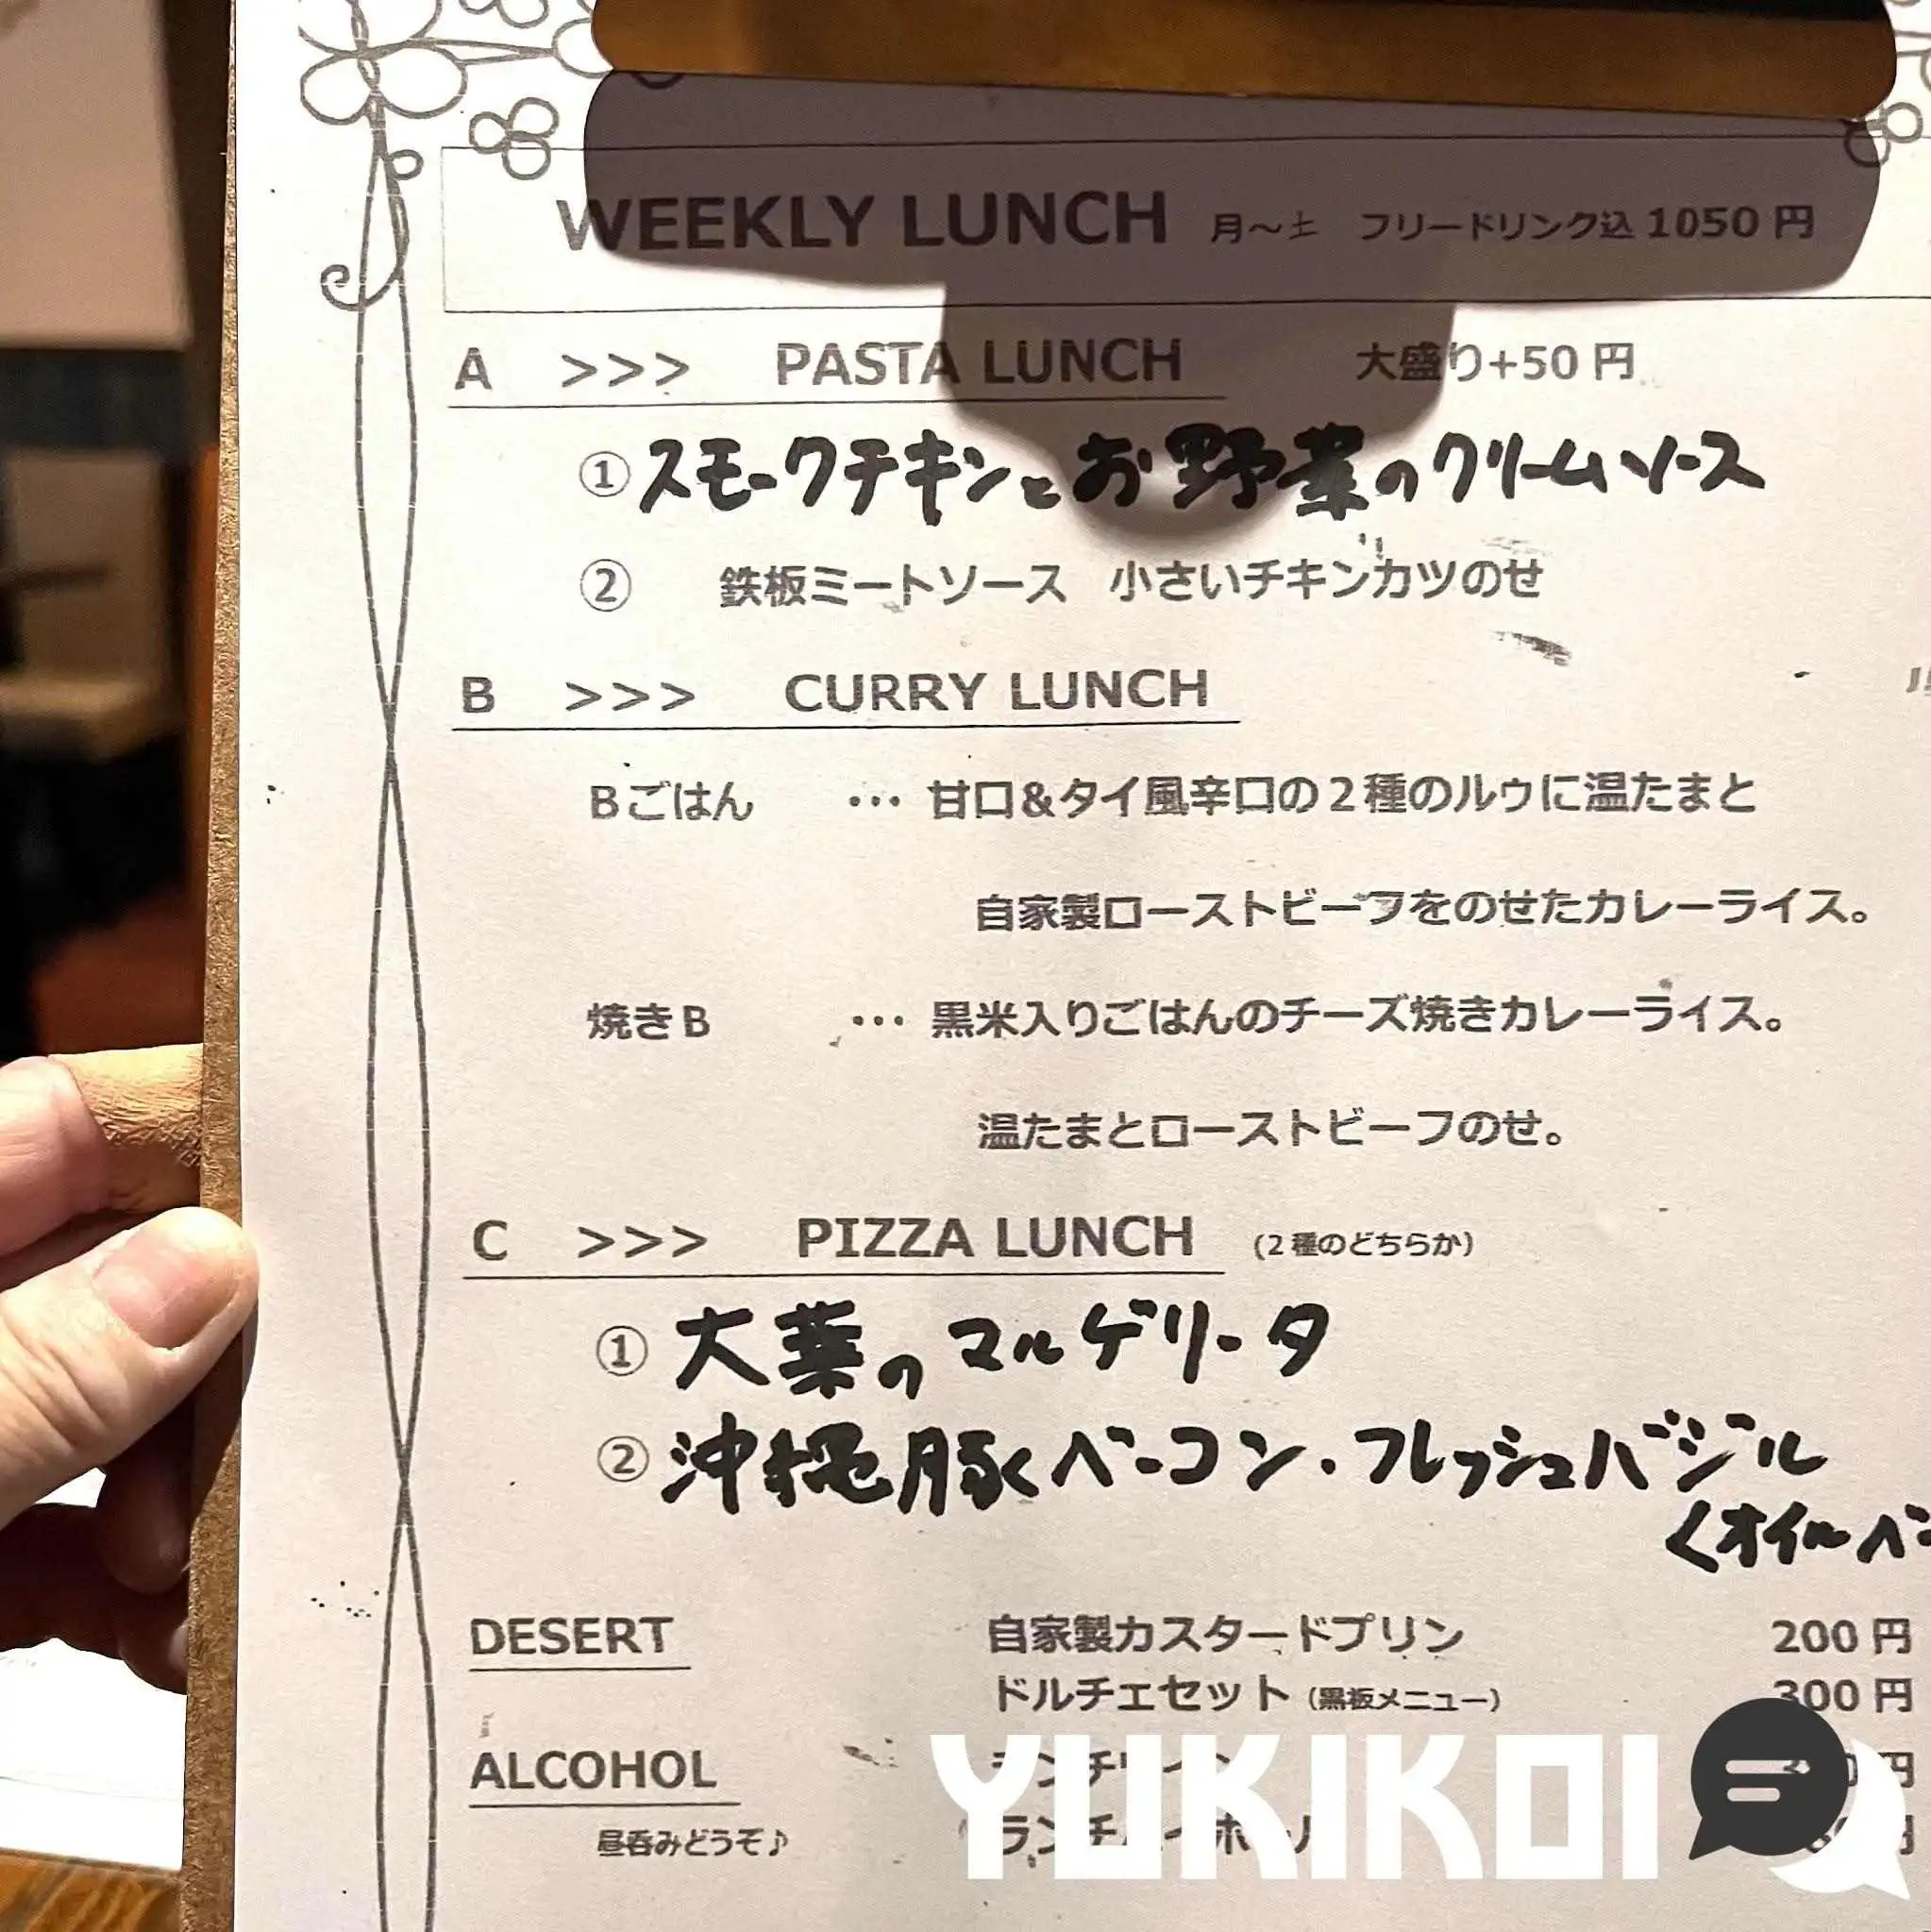 WEEKLY LUNCH 月～土 フリードリンク込 1050 円
A >>> PASTA LUNCH 大盛り+50 円
① スモークチキンとお野菜のクリームソース
② 鉄板ミートソース 小さいチキンカツのせ
B >>> CURRY LUNCH
Bごはん … 甘口＆タイ風辛口の２種のルゥに温たまと
自家製ローストビーフをのせたカレーライス。
焼きB … 黒米入りごはんのチーズ焼きカレーライス。
温たまとローストビーフのせ。
C >>> PIZZA LUNCH (2種のどちらか)
① 大葉のマルゲリータ
② 沖縄豚ベーコン・フレッシュバジル
＜オイルベー
DESERT 自家製カスタードプリン 200 円
ドルチェセット（黒板メニュー） 300 円
ALCOHOL 円
昼呑みどうぞ♪ 円
YUKIKOI